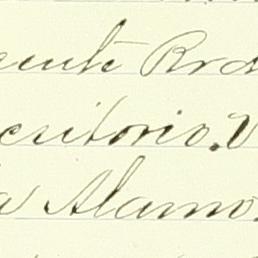 cente Rod
critorio. V
a Alamo.